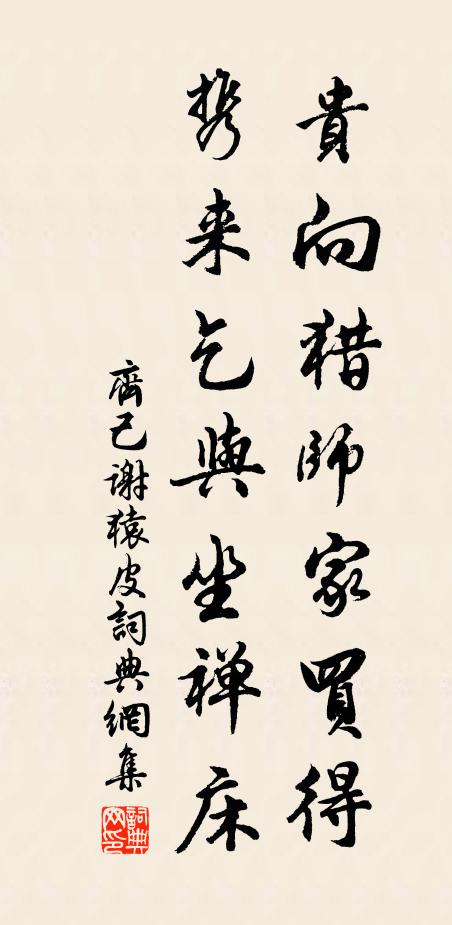 貴向猎師家買得
携来乞與坐禅床
齊己谢猿皮詞典網集
詞典网印